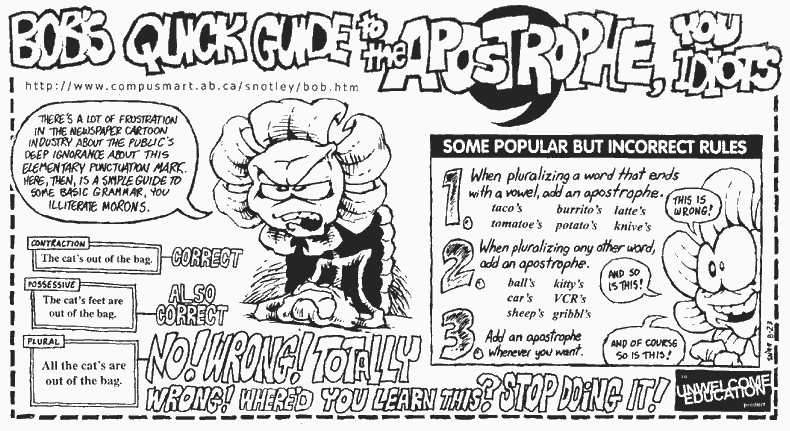 BOB'S QUICK GUIDE to the APOSTROPHE, YOU IDIOTS
http://www.compusmart.ab.ca/snotley/bob.htm
THERE'S A LOT OF FROSTRATION
IN THE NEWSPAPER CARTOON
INDUSTRY ABOUT THE PUBLIC'S
DEEP IGNORANCE ABOUT THIS
ELEMENTARY PUNCTUATION MARK.
HERE, THEN, IS A SIMPLE GUIDE TO
SOME BASIC GRAMMAR, YOU
ILLITERATE MORONS.
CONTRACTION
The cat's out of the bag.
CORRECT
POSSESSIVE
The cat's feet are
out of the bag.
ALSO
CORRECT
PLURAL
All the cat's are
out of the bag.
NO! WRONG! TOTALLY
WRONG! WHERE'D YOU LEARN THIS? STOP DOING IT!
SOME POPULAR BUT INCORRECT RULES
1. When pluralizing a word that ends
with a vowel, add an apostrophe.
taco's burrito's latte's
tomatoe's potato's knive's
THIS IS
WRONG!
2. When pluralizing any other word,
add an apostrophe.
ball's kitty's
car's VCR's
sheep's gribbl's
AND SO
IS THIS!
3. Add an apostrophe
whenever you want.
AND OF COURSE
SO IS THIS!
UNWELCOME
EDUCATION
product